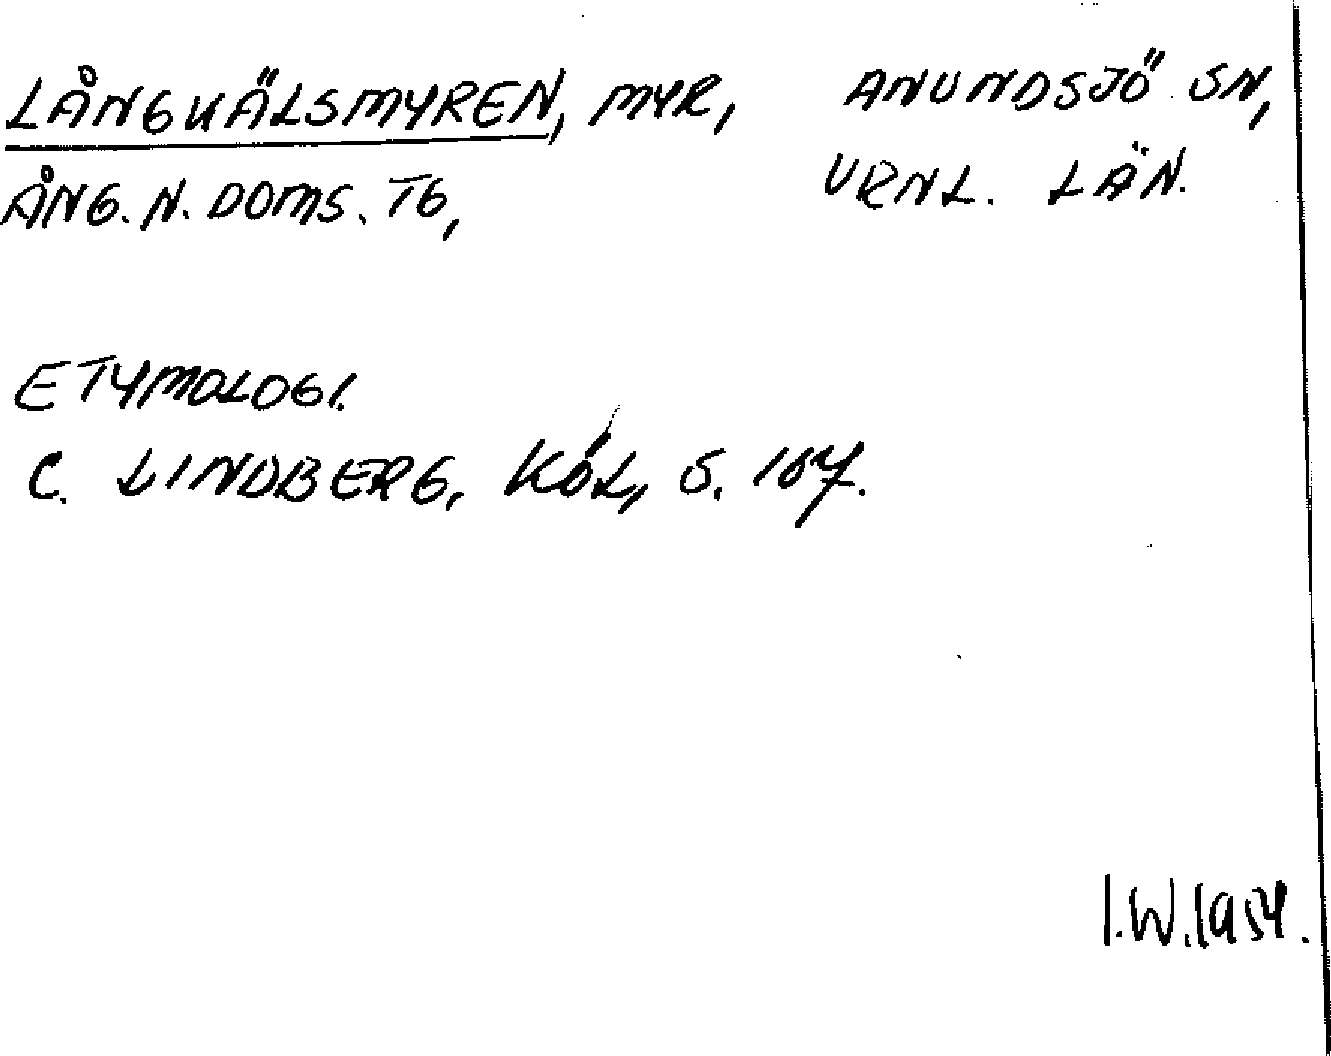 LÅNGKÄLSMYREN, MYR, ANUNDSJÖ SN,
ÅNG. N. DOMS. TG, VRNL. LÄN.
ETYMOLOGI.
C. LINDBERG, KÓL, S. 107.
I.W.1954.